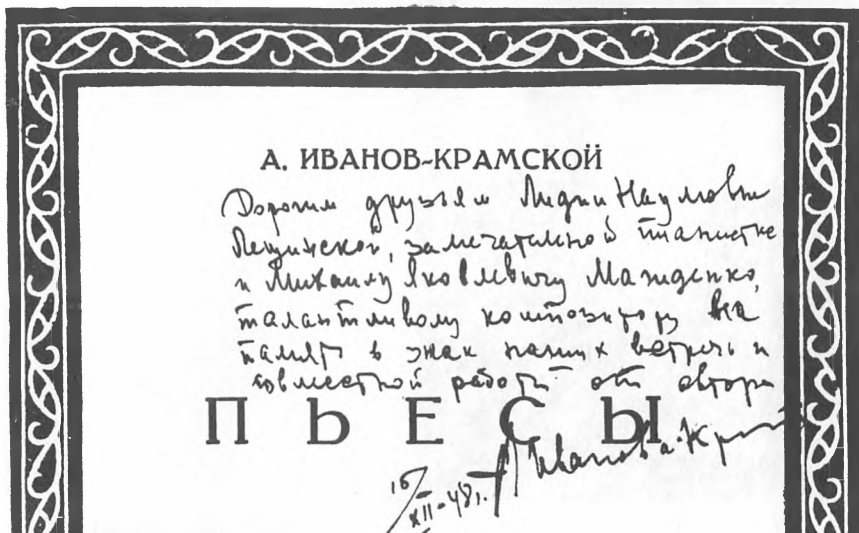 А. ИВАНОВ-КРАМСКОЙ
Дорогим друзьям Лидии Наумовне
Лещинской, замечательной пианистке
и Михаилу Яковлевичу
талантливому композитору на
память в знак наших встреч и
совместной работы от автора
ПЬЕСЫ
Иванов-Крамской
16/XII-48г.